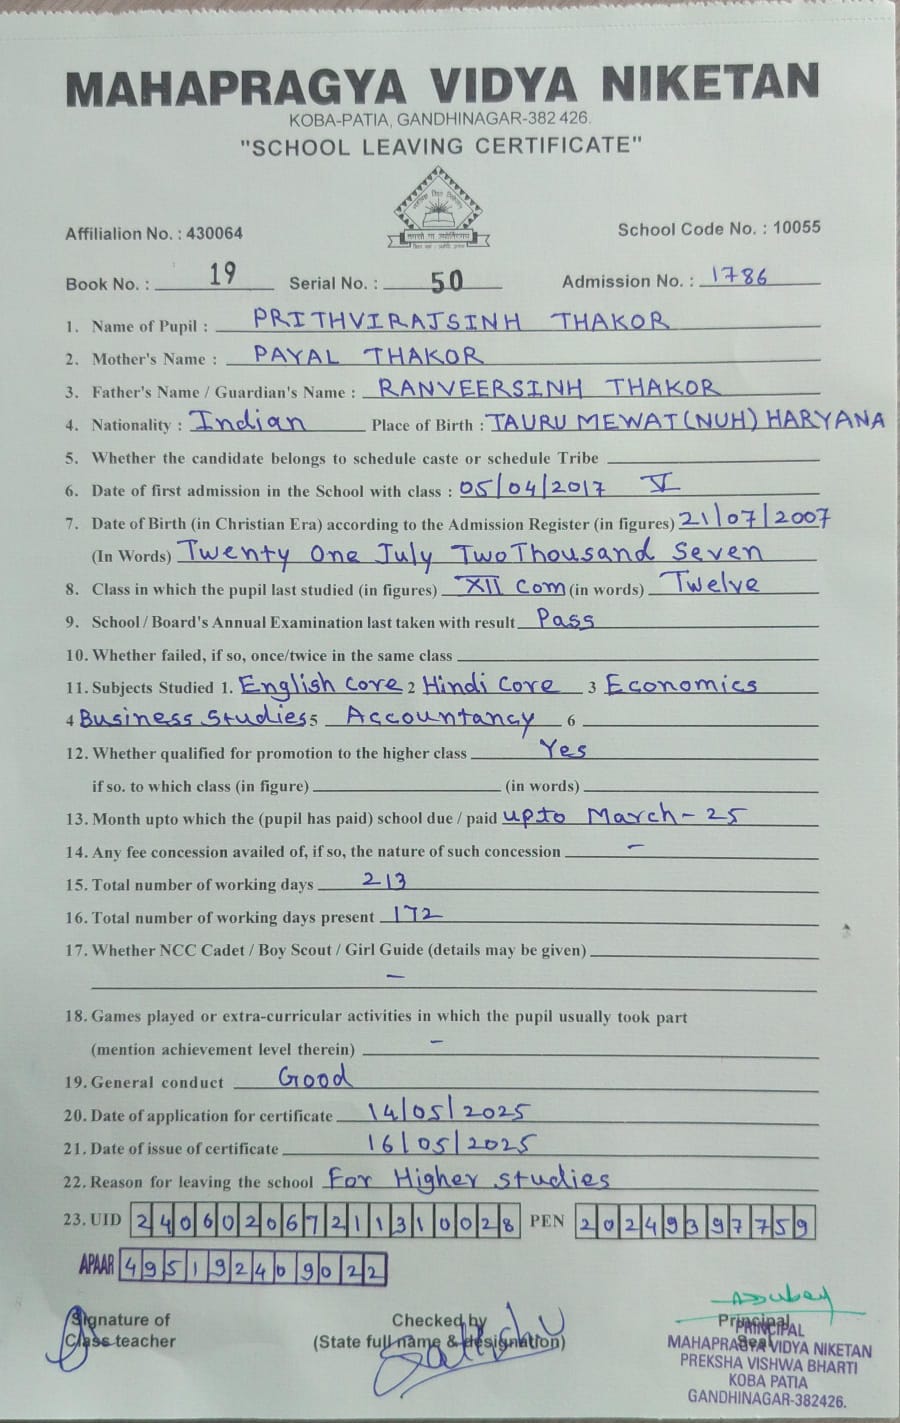 MAHAPRAGYA VIDYA NIKETAN
KOBA-PATIA, GANDHINAGAR-382 426.
"SCHOOL LEAVING CERTIFICATE"
Affilialion No. : 430064 School Code No. : 10055
Book No. : 19 Serial No. : 50 Admission No. : 1786
1. Name of Pupil : PRITHVIRAJSINH THAKOR
2. Mother's Name : PAYAL THAKOR
3. Father's Name / Guardian's Name : RANVEERSINH THAKOR
4. Nationality : Indian Place of Birth : TAURU MEWAT (NUH) HARYANA
5. Whether the candidate belongs to schedule caste or schedule Tribe
6. Date of first admission in the School with class : 05/04/2017 V
7. Date of Birth (in Christian Era) according to the Admission Register (in figures) 21/07/2007
(In Words) Twenty One July Two Thousand Seven
8. Class in which the pupil last studied (in figures) XII Com (in words) Twelve
9. School / Board's Annual Examination last taken with result Pass
10. Whether failed, if so, once/twice in the same class
11. Subjects Studied 1. English Core 2 Hindi Core 3 Economics
4 Business Studies 5 Accountancy 6
12. Whether qualified for promotion to the higher class Yes
if so. to which class (in figure) (in words)
13. Month upto which the (pupil has paid) school due / paid upto March - 25
14. Any fee concession availed of, if so, the nature of such concession -
15. Total number of working days 213
16. Total number of working days present 172
17. Whether NCC Cadet / Boy Scout / Girl Guide (details may be given)
-
18. Games played or extra-curricular activities in which the pupil usually took part
(mention achievement level therein) -
19. General conduct Good
20. Date of application for certificate 14/05/2025
21. Date of issue of certificate 16/05/2025
22. Reason for leaving the school For Higher Studies
23. UID 240602067211310028 PEN 20249397759
APAAR 495192409022
Signature of Checked by Principal
Class teacher (State full name & designation) Seal
PRINCIPAL
MAHAPRAGYA VIDYA NIKETAN
PREKSHA VISHWA BHARTI
KOBA PATIA
GANDHINAGAR-382426.